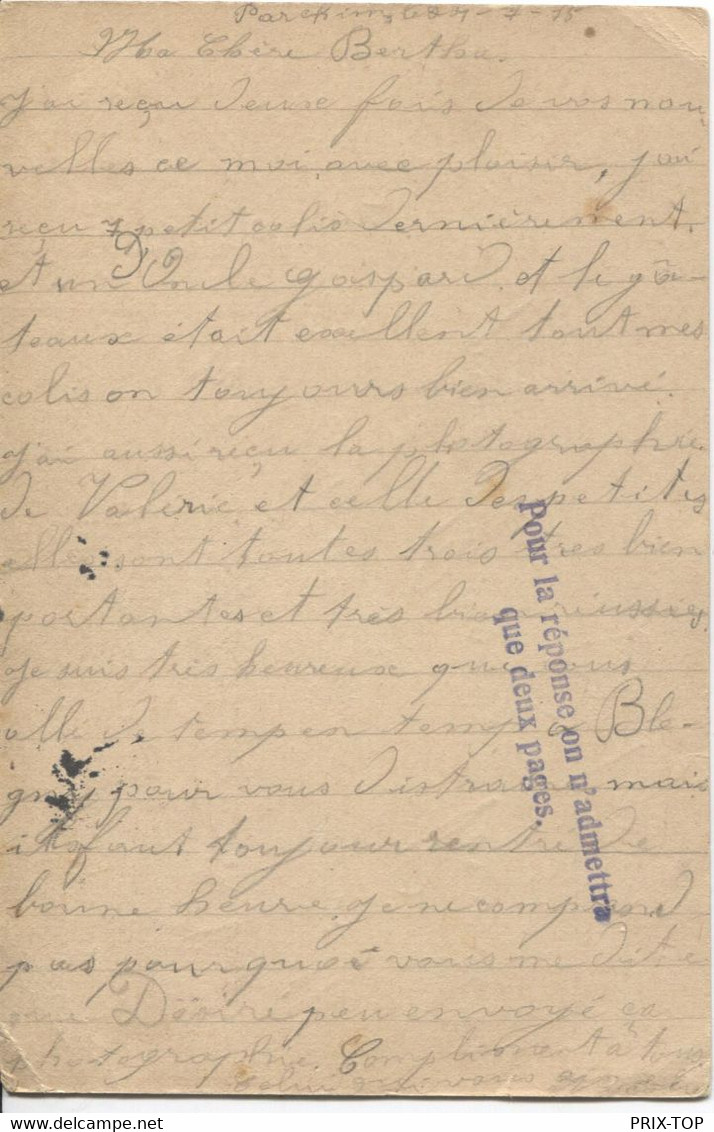 Parckim, le 24-7-15
Ma Chère Bertha.
J'ai reçu deux fois de vos nou-
velles ce moi avec plaisir, j'ai
reçu 7 petit colis dernièrement.
et un D'Oncle gaspard. et le gâ-
teaux était exellent tout mes
colis on toujours bien arrivé.
j'ai aussi reçu la photographie
de Valérie et celle des petites
elle sont toutes trois très bien
portantes et très bien réussies
Je suis très heureuse que vous
alle de temp en temp à Ble-
gny pour vous distraire mais
il faut toujour rentré de
bonne heure. je ne comprend
pas pourquoi vous me dite
que Désiré peu envoyé ça
photographie. Compliment à tous
Celui qui vous
Pour la réponse on n'admettra
que deux pages.
PRIX-TOP